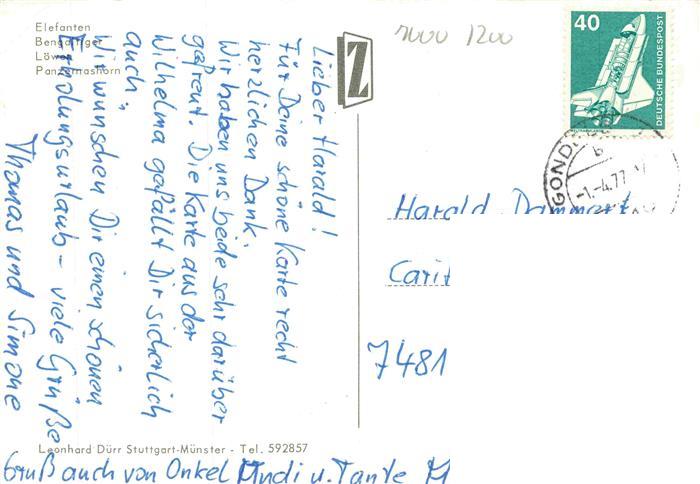 Elefanten
Bengaltiger
Löwe
Panzernashorn
Z
7000 1200
40
DEUTSCHE BUNDESPOST
GOND
b
-1.-4.77
Lieber Harald!
Für Deine schöne Karte recht
herzlichen Dank.
Wir haben uns beide sehr darüber
gefreut. Die Karte aus der
Wilhelma gefällt Dir sicherlich
auch.
Wir wünschen Dir einen schönen
Erholungsurlaub - viele Grüße
Thomas und Simone
Harald Dammert
Carit
7481
Leonhard Dürr Stuttgart-Münster - Tel. 592857
Gruß auch von Onkel Andi u. Tante M